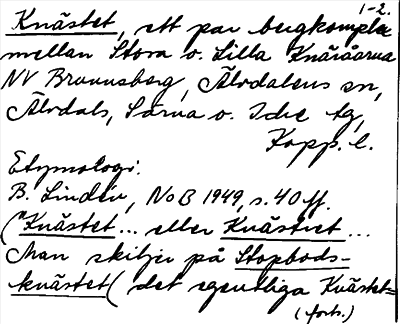 1-2.
Knästet, ett par bergkomplex
mellan Stora o. Lilla Knäråarna
NV Brunnsberg, Älvdalens sn,
Älvdals, Särna o. Idre tg,
Kopp. l.
Etymologi:
B. Lindén, NoB 1949, s. 40 ff.
("Knästet ... eller Knästret ...
Man skiljer på Stopbods-
knästet ( det egentliga Knästet=
(forts.)